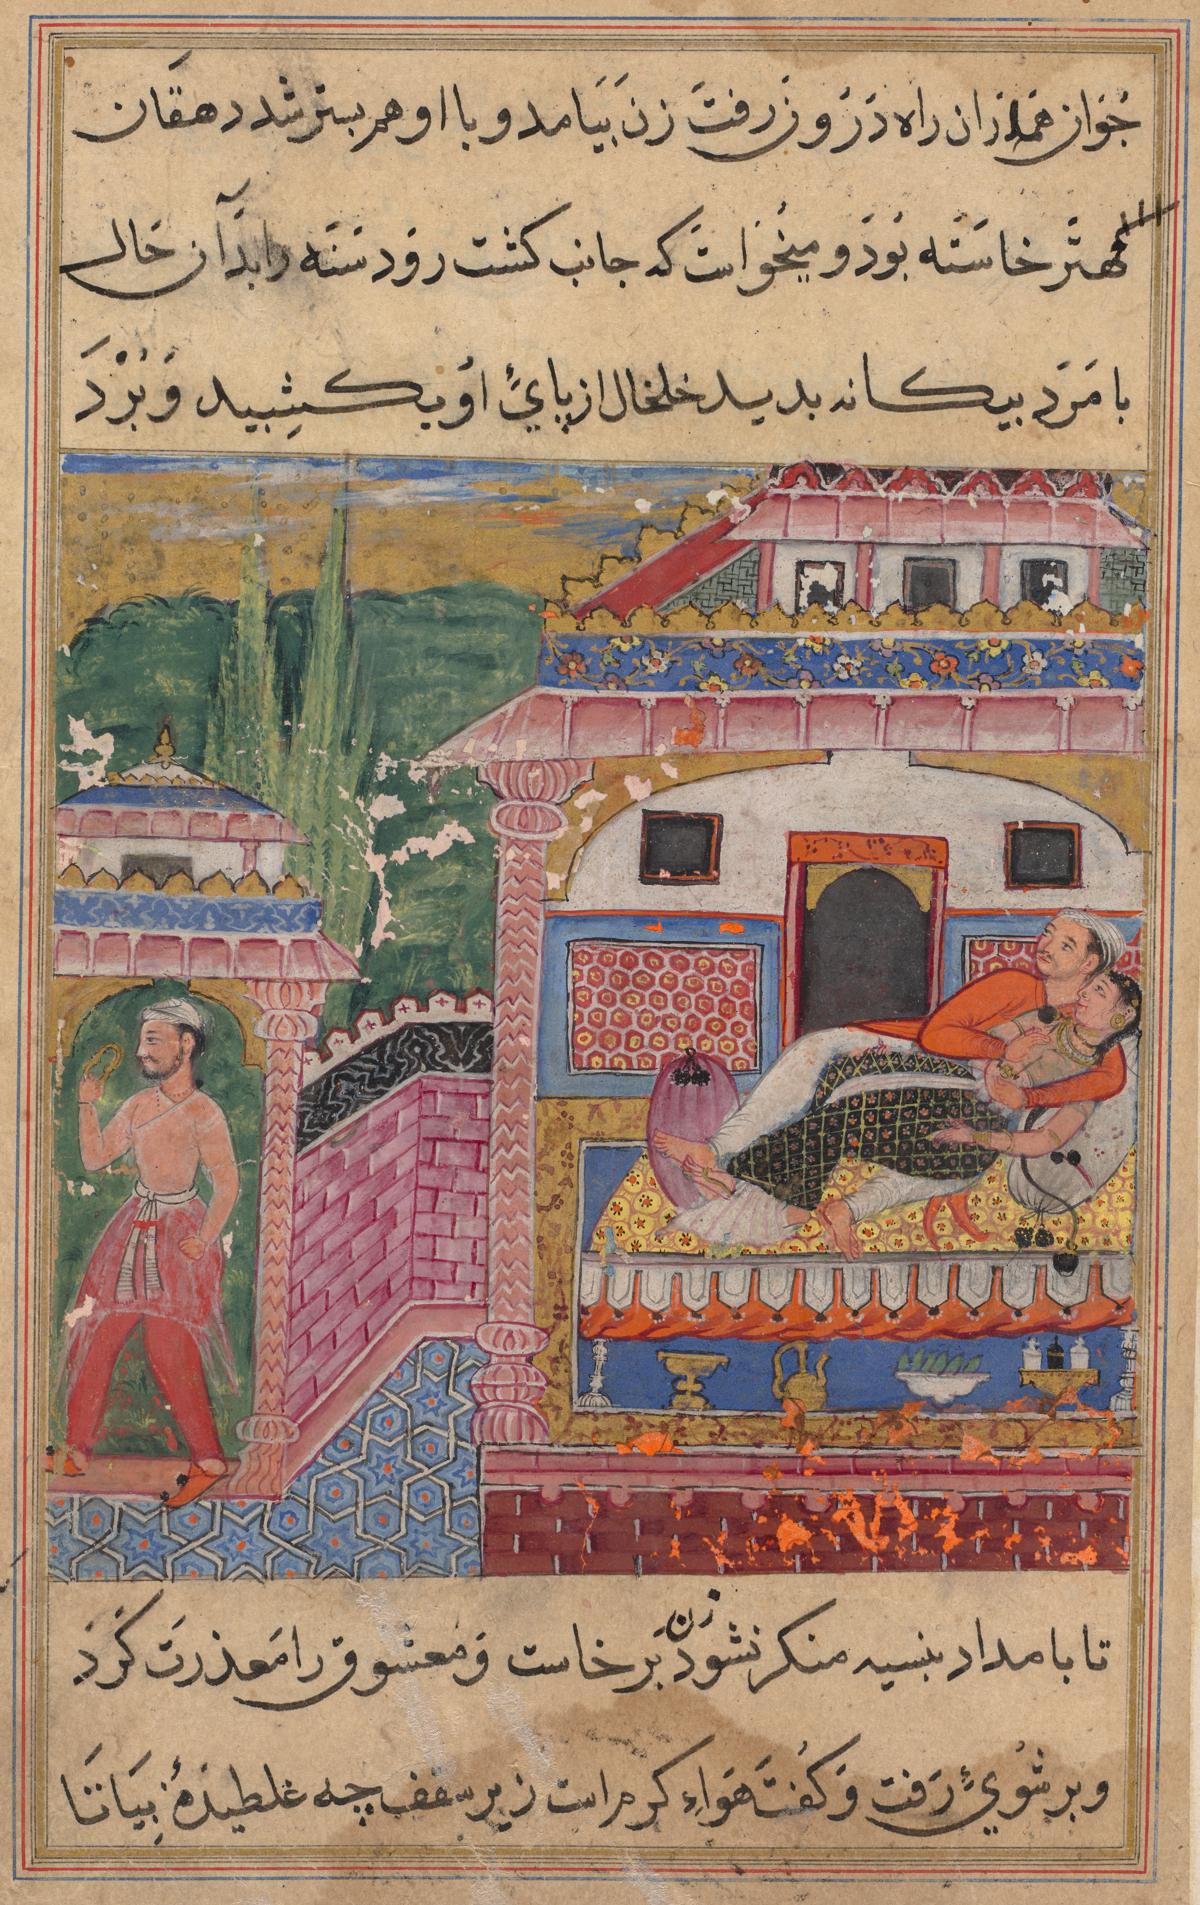 جوان هم از ان راه درون رفت زن بیامد و با او هم بستر شد دهقان
مهتر خاسته بود و میخواست که جانب کشت رود سته را بدان حال
با مرد بیکانه بدید خلخال از پای او بکشید و ببرد
تا بامداد بنسیه منکر نشود زن بر خاست و معشوق را معذرت کرد
و بر شوی رفت و کفت هواء کرم است زیر سقف چه غلطیدهٔ بیا تا